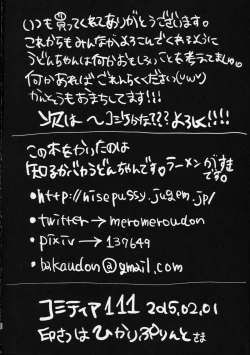 いつも買ってくれてありがとうございます。
これからもみんながよろこんでくれるように
うどんちゃんは何かおもしろいことを考えてましゅ。
何かあればごれんらくください(UwU)
かんそうもおまちしてます!!!
次は〜コミケかな???よろしく!!!!
この本をかいたのは
知るかバカうどんちゃんです。ラーメンがすき
です。
•http://nisepussy.jugem.jp/
•twitter→meromeroudon
•pixiv→137649
•bakaudon@gmail.com
コミティア111 2015.02.01
印さつはひかりぷりんとさま